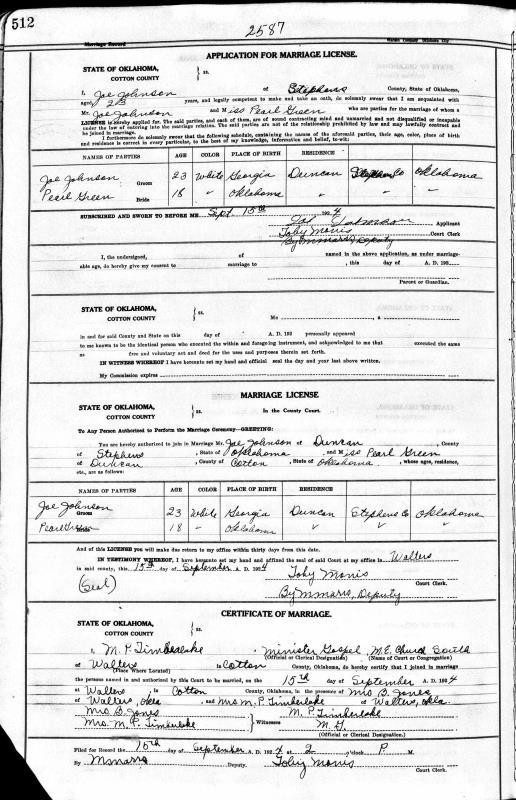 512
2587
Marriage Record
APPLICATION FOR MARRIAGE LICENSE.
STATE OF OKLAHOMA,
COTTON COUNTY
ss.
I, Joe Johnson of Stephens County, State of Oklahoma,
aged 23 years, and legally competent to make and take an oath, do solemnly swear that I am acquainted with
Mr. Joe Johnson and Miss Pearl Green who are parties for the marriage of whom a
LICENSE is hereby applied for. The said parties, and each of them, are of sound contracting mind and unmarried and not disqualified or incapable
under the law of entering into the marriage relation. The said parties are not of the relationship prohibited by law and may lawfully contract and
be joined in marriage.
I furthermore do solemnly swear that the following schedule, containing the names of the aforesaid parties, their age, color, place of birth
and residence is correct in every particular, to the best of my knowledge, information and belief, to-wit:
NAMES OF PARTIES AGE COLOR PLACE OF BIRTH RESIDENCE
Joe Johnson Groom 23 White Georgia Duncan Stephens Co Oklahoma
Pearl Green Bride 18 " Oklahoma " " "
SUBSCRIBED AND SWORN TO BEFORE ME Sept 15th 1924
Joe Johnson Applicant
Toby Morris Court Clerk
By M Marrs, Deputy
I, the undersigned, of named in the above application, as under marriage-
able age, do hereby give my consent to marriage to , this day of A. D. 192
Parent or Guardian.
STATE OF OKLAHOMA,
COTTON COUNTY
ss.
Me , a
in and for said County and State on this day of A. D. 192 personally appeared
to me known to be the identical person who executed the within and foregoing instrument, and acknowledged to me that executed the same
as free and voluntary act and deed for the uses and purposes therein set forth.
IN WITNESS WHEREOF I have hereunto set my hand and official seal the day and year last above written.
My Commission expires
MARRIAGE LICENSE
STATE OF OKLAHOMA,
COTTON COUNTY
ss.
In the County Court.
To Any Person Authorized to Perform the Marriage Ceremony—GREETING:
You are hereby authorized to join in Marriage Mr. Joe Johnson of Duncan, County
of Stephens, State of Oklahoma, and Miss Pearl Green
of Duncan, County of Cotton, State of Oklahoma, whose ages, residence,
etc., are as follows:
NAMES OF PARTIES AGE COLOR PLACE OF BIRTH RESIDENCE
Joe Johnson Groom 23 White Georgia Duncan Stephens Co Oklahoma
Pearl Green Bride 18 " Oklahoma " " "
And of this LICENSE you will make due return to my office within thirty days from this date.
IN TESTIMONY WHEREOF, I have hereunto set my hand and affixed the seal of said Court at my office in Walters
in said county, this 15th day of September A. D. 1924
(Seal)
Toby Morris
Court Clerk.
By M Marrs, Deputy
CERTIFICATE OF MARRIAGE.
STATE OF OKLAHOMA,
COTTON COUNTY
ss.
I, M. P. Timberlake, Minister Gospel, M.E. Church South
(Official or Clerical Designation) (Name of Court or Congregation)
of Walters in Cotton County, Oklahoma, do hereby certify that I joined in marriage
(Place Where Located)
the persons named in and authorized by this Court to be married, on the 15th day of September A. D. 1924
at Walters, in Cotton County, Oklahoma, in the presence of Mrs B. Jones
of Walters, Okla. and Mrs M. P. Timberlake of Walters, Okla.
Mrs B. Jones M. P. Timberlake
Mrs. M. P. Timberlake Witnesses M. G.
(Official or Clerical Designation.)
Filed for Record the 15th day of September A. D. 1924 at 2 o'clock P M.
By M Marrs Deputy. Toby Morris
Court Clerk.